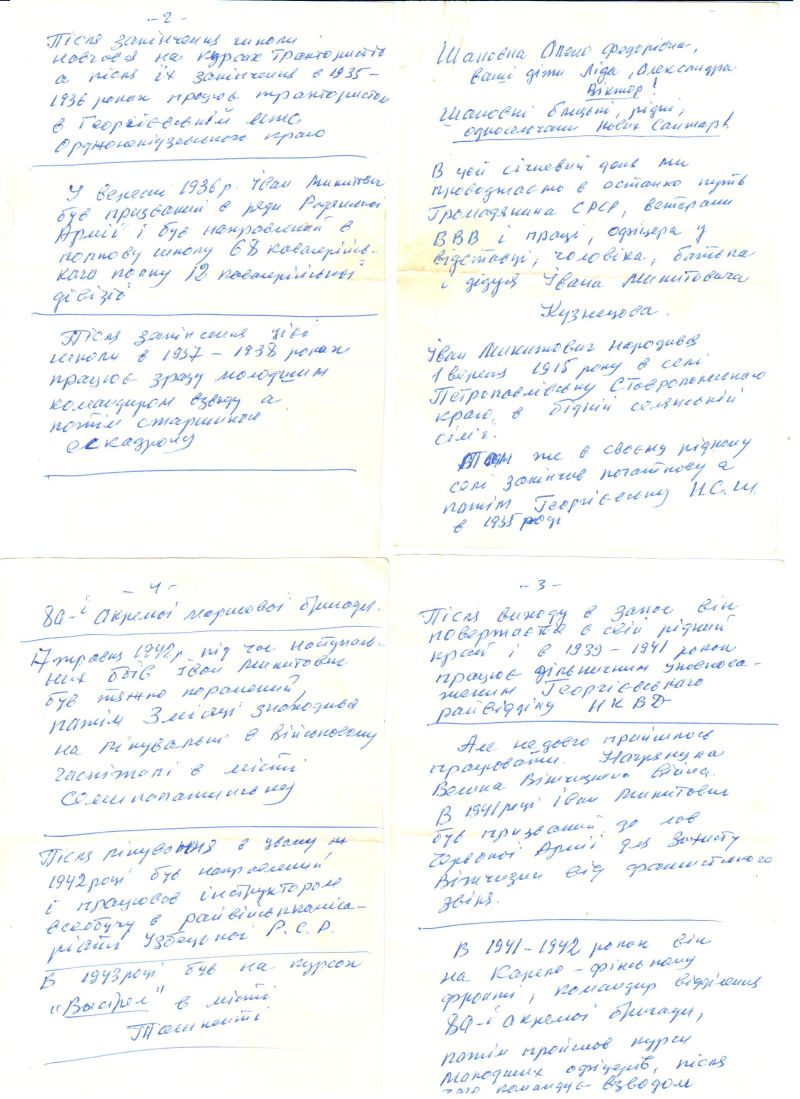 Шановна Олено Федорівна,
ваші діти Ліда, Олександра
Віктор!
Шановні близькі, рідні,
односельчани Нових Санжар!
В цей січневий день ми
проводжаємо в останю путь
Громадянина СРСР, ветерана
ВВВ і праці, офіцера у
відставці, чоловіка, батька
і дідуся Івана Микитовича
Кузнецова.
Іван Микитович народився
1 вересня 1915 року в селі
Петропавлівську Ставропольського
краю, в бідній селянській
сім'ї.
Там же в своєму рідному
селі закінчив початкову а
потім Георгієвську Н.С.Ш.
в 1935 році
-2-
Після закінчення школи
навчався на курсах Трактористів
а після їх закінчення в 1935-
1936 роках працює трактористом
в Георгієвській МТС
Орджонікідзевського краю
У вересні 1936 р. Іван Микитович
був призваний в ряди Радянської
Армії і був направлений в
полкову школу 68 кавалерійсь-
кого полку 12 кавалерійської
дівізії
Після закінчення цієї
школи в 1937 - 1938 роках
працює зразу молодшим
командиром взводу а
потім старшиною
ескадрону
-3-
Після виходу в запас він
повертається в свій рідний
край і в 1939 - 1941 роках
працює дільничним уповноса-
женим Георгієвського
райвідділу НКВД
Але недовго прийшлося
працювати. Нагрянула
Велика Вітчизняна війна.
В 1941 році Іван Микитович
був призваний до лав
Червоної Армії для Захисту
Вітчизни від фашистського
звіря.
В 1941-1942 роках він
на Карело-фінському
фронті, командир відділення
80-ї окремої бригади,
потім пройшов курси
молодших офіцерів, після
чого командує взводом
-4-
80-ї окремої морської бригади.
17 травня 1942 р. під час наступаль-
них боїв Іван Микитович
був тяжко поранений,
потім 3 місяці знаходився
на лікувальні в військовому
госпіталі в місті
Семипалатинську
Після лікування в цьому ж
1942 році був направлений
і працював інструктором
всеобучу в райвійськкоміса-
ріаті Узбецької Р.С.Р.
В 1943 році був на курсах
"Выстрел" в місті
Ташкенті